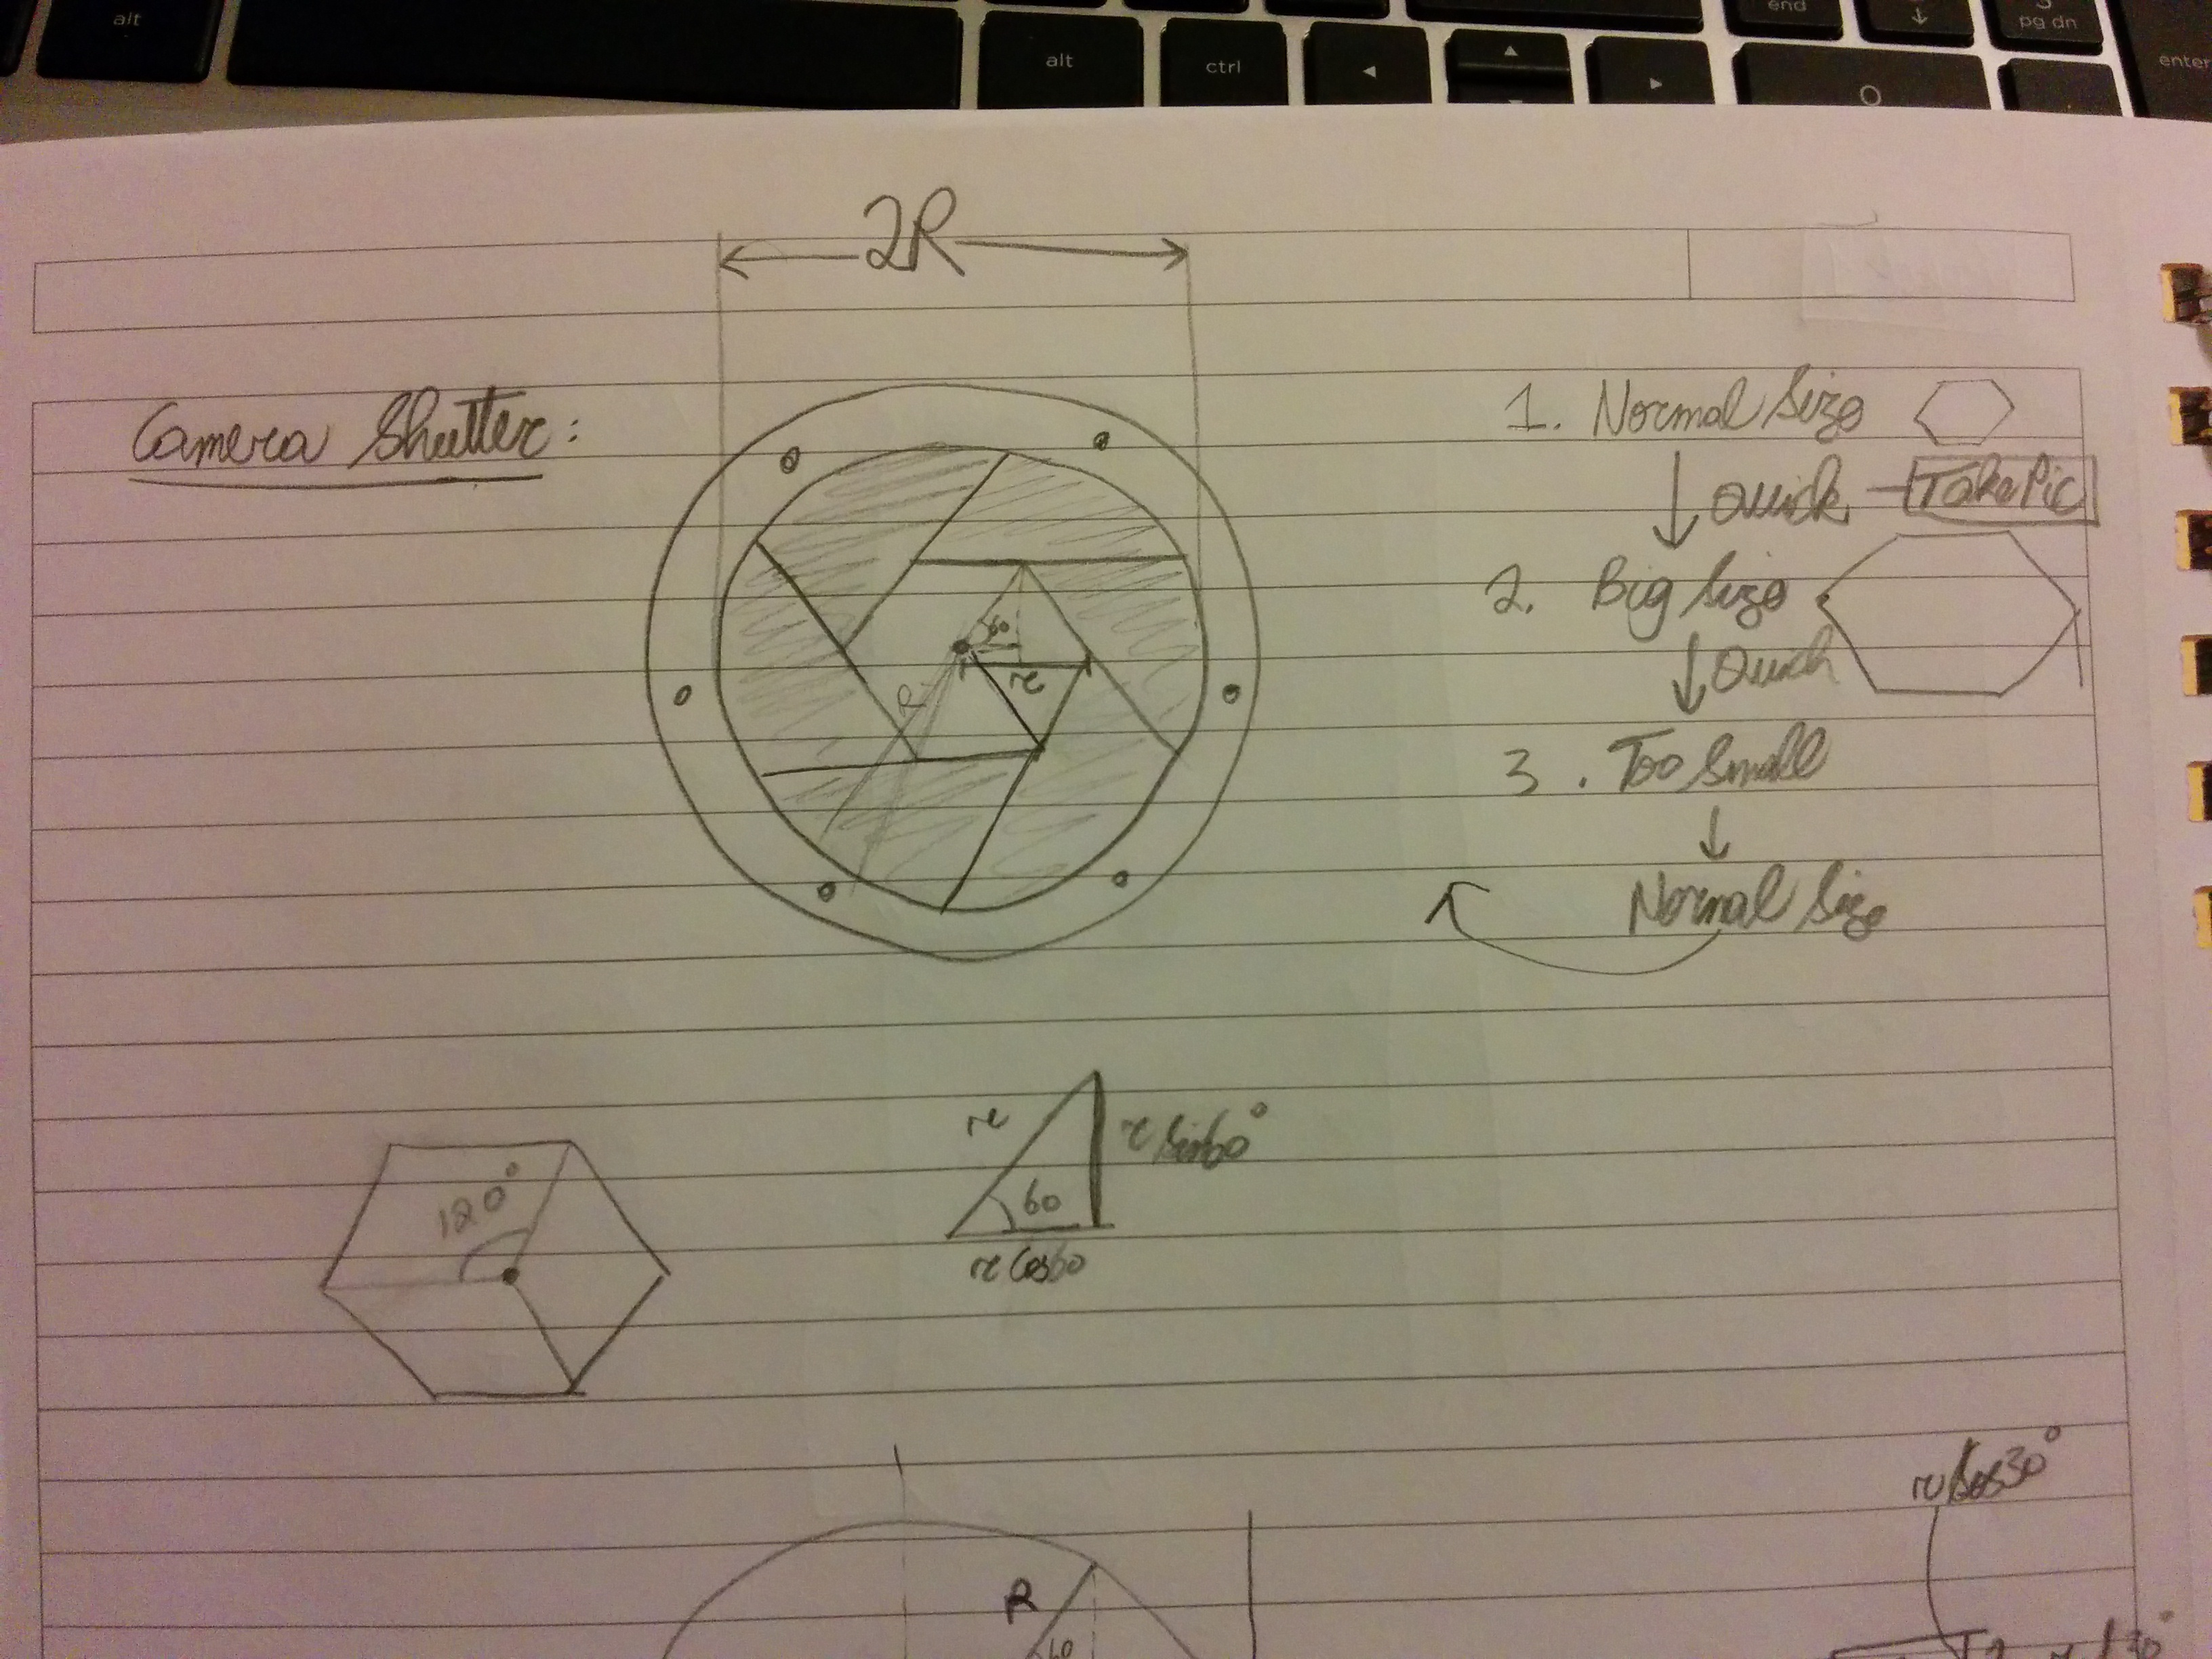 alt
alt
ctrl
end
pg dn
enter
2R
Camera Shutter:
1. Normal Size
Quick
Take Pic
2. Big Size
Quick
3. Too Small
Normal Size
60
r
R
120°
r
r Sin60°
60
r Cos60
r Cos30°
R
60